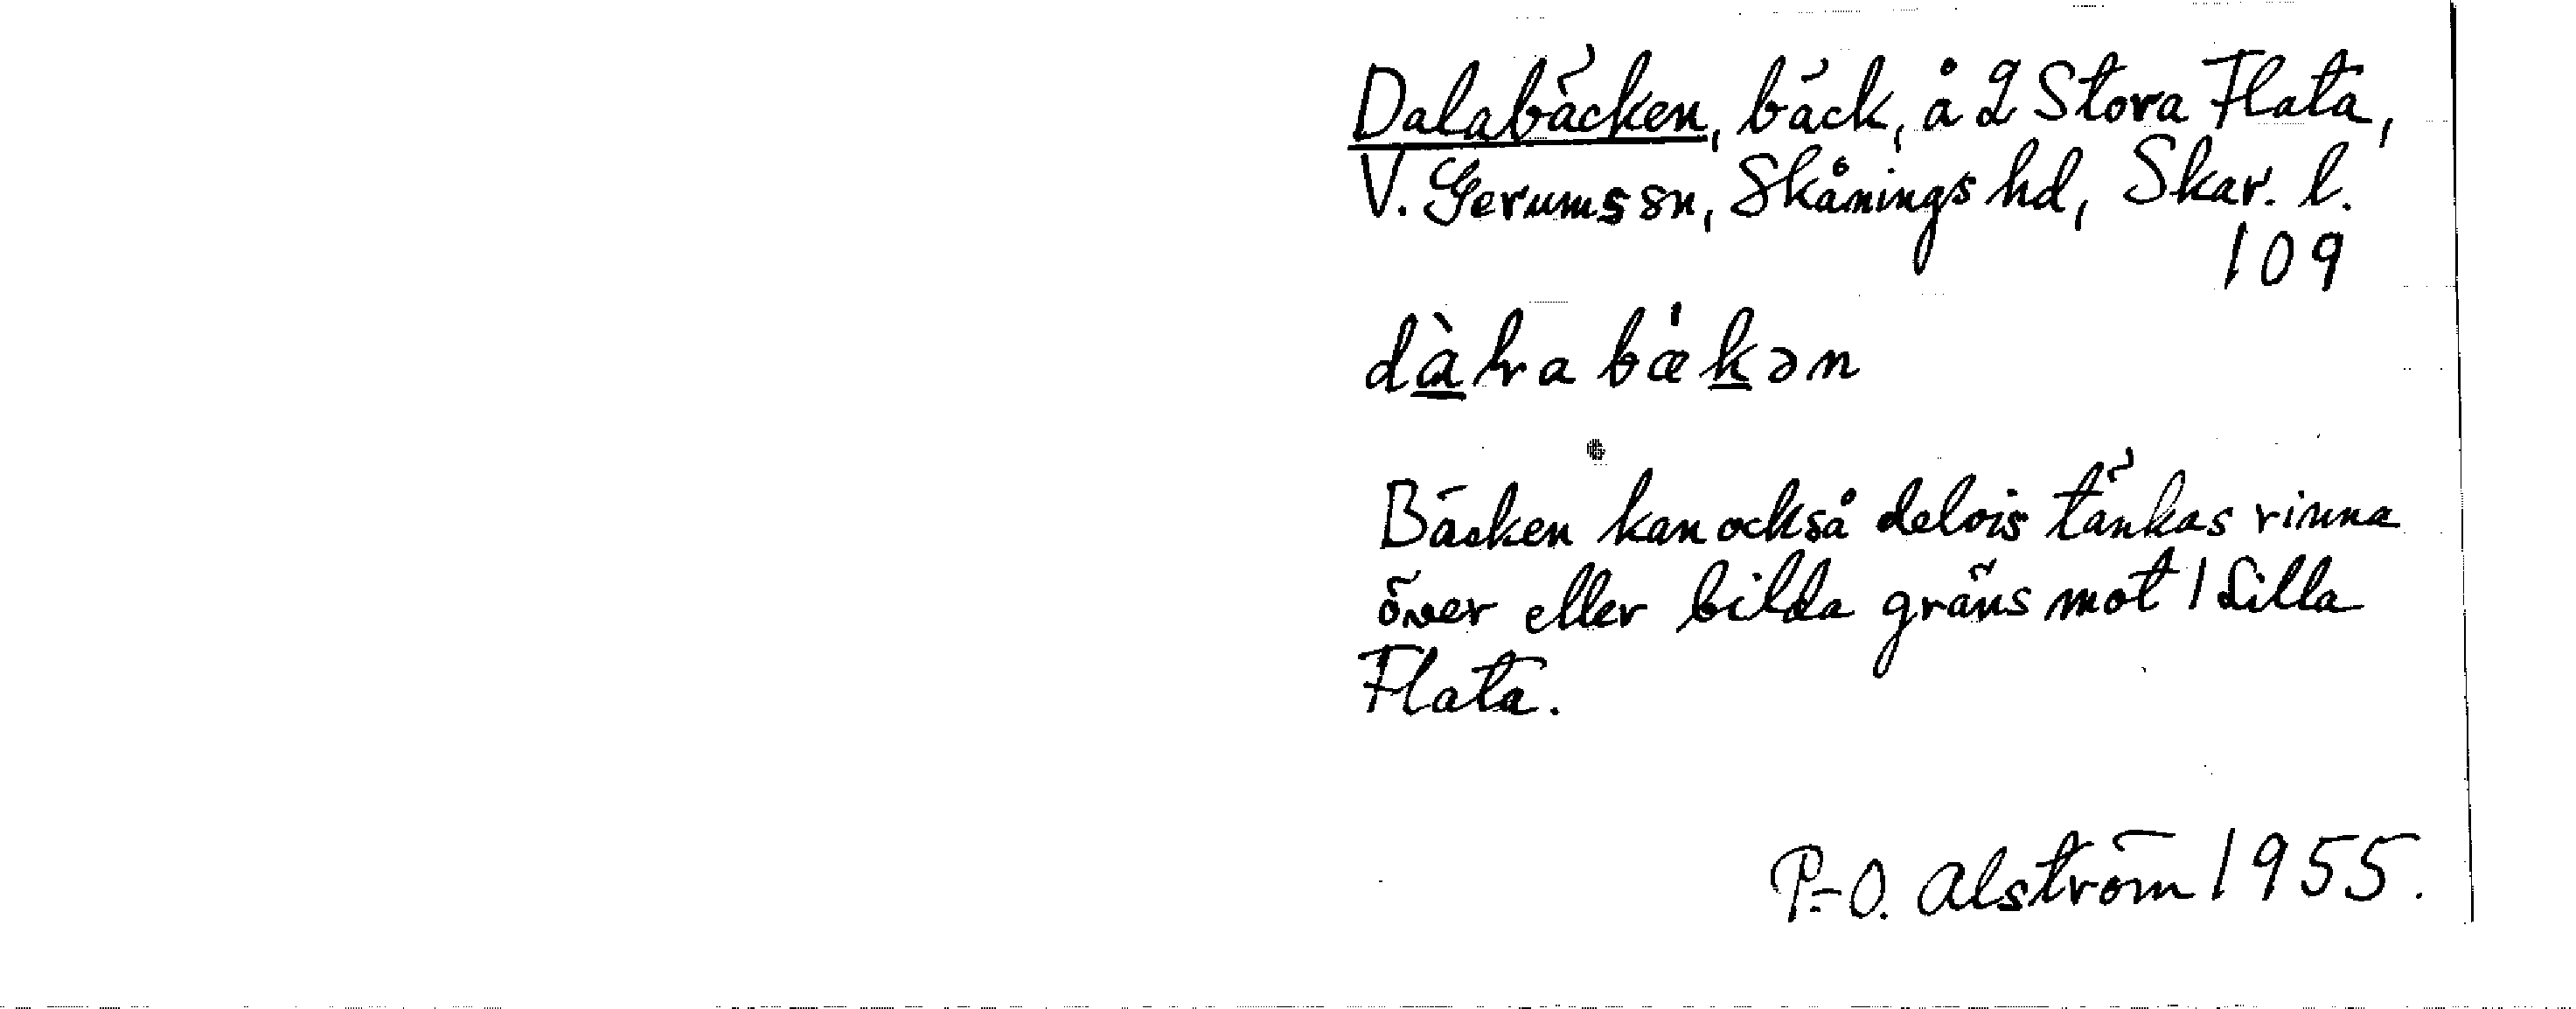 Dalabäcken, bäck, å 2 Stora Flata,
V. Gerums sn, Skånings hd, Skar. l.
109
dàɫra bækən
Bäcken kan också delvis tänkas rinna
över eller bilda gräns mot 1 Lilla
Flata.
P.-O. Alström 1955.